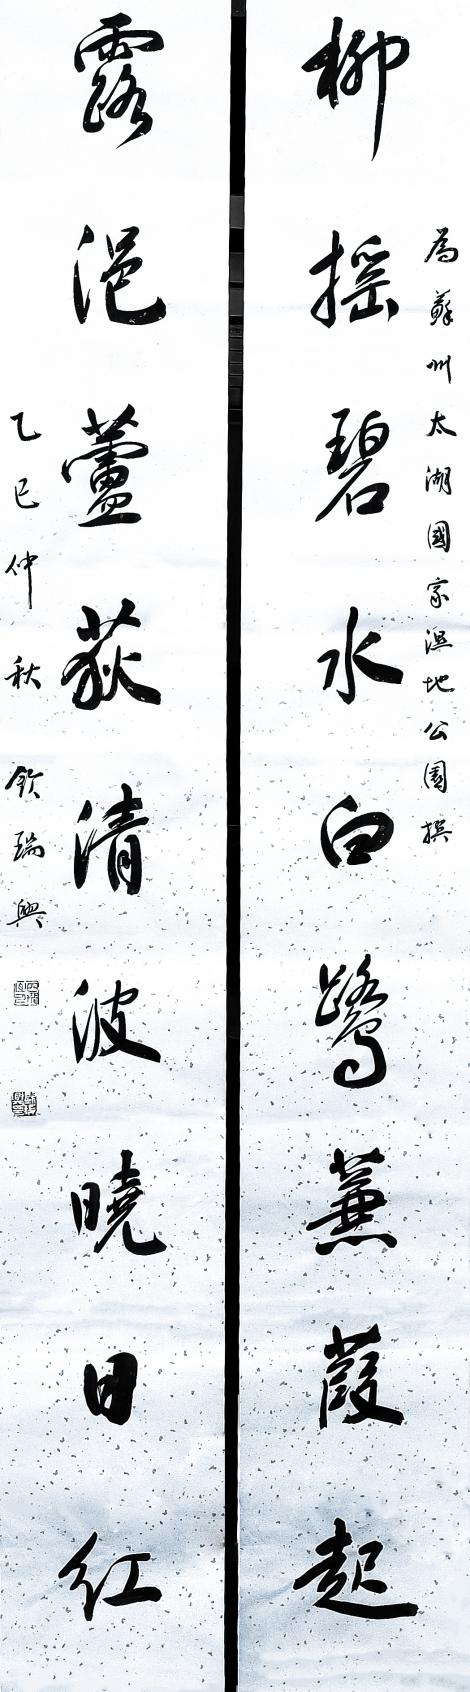 為蘇州太湖國家濕地公園撰
柳搖碧水白鷺蒹葭起
露浥蘆荻清波曉日紅
乙巳仲秋欽瑞興